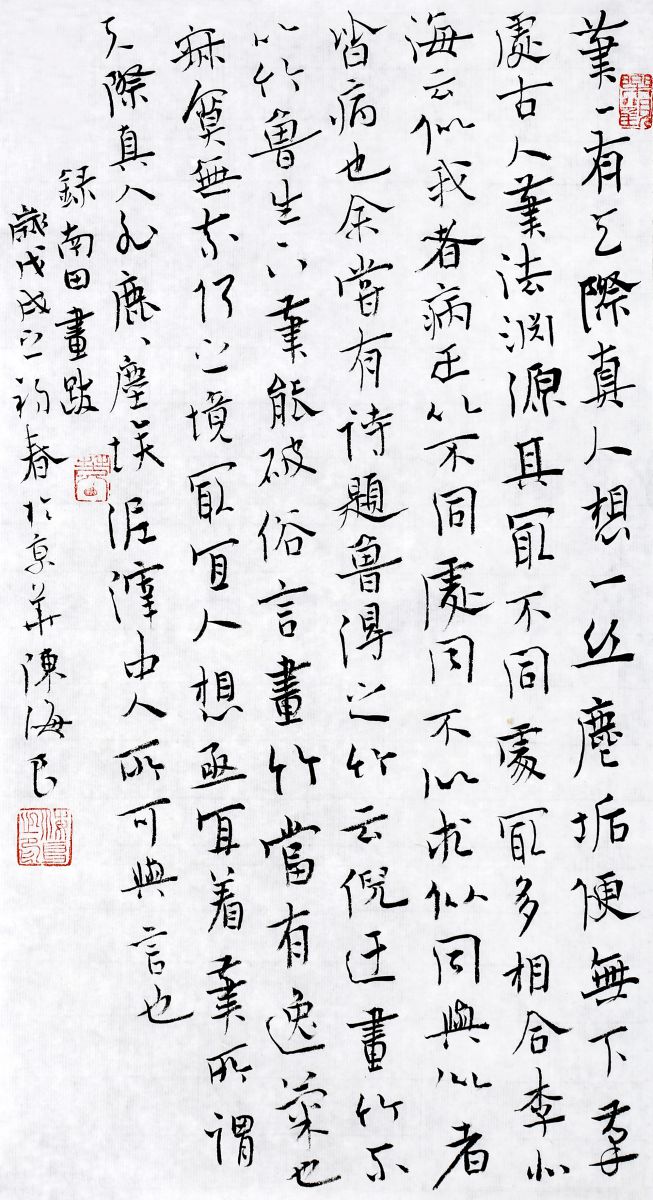 筆一有天際真人想一丝塵垢便無下筆
處古人筆法渊源其最不同處最多相合李北
海云似我者病正以不同處同不似求似同與似者
皆病也余嘗有诗題魯得之竹云倪迂畫竹不
似竹魯生下筆能破俗言畫竹當有逸氣也
寂寞無奈何之境最宜人想亟宜着筆所謂
天際真人非鹿、塵埃泥滓中人所可與言也
録南田畫跋
歲戊戌之初春於京華陳海良